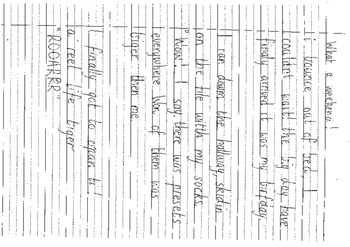 What a weekend!
I bounce out of bed, I
couldn't wait the big day have
finally arrived it was my birfday.
I ran down the hallway skidin
on the tile with my socks.
"Wow" I say there was presets
everywhere wu of them was
tiger them me.
I finally got to opan ti!
a reel life tiger
"ROOARRR"